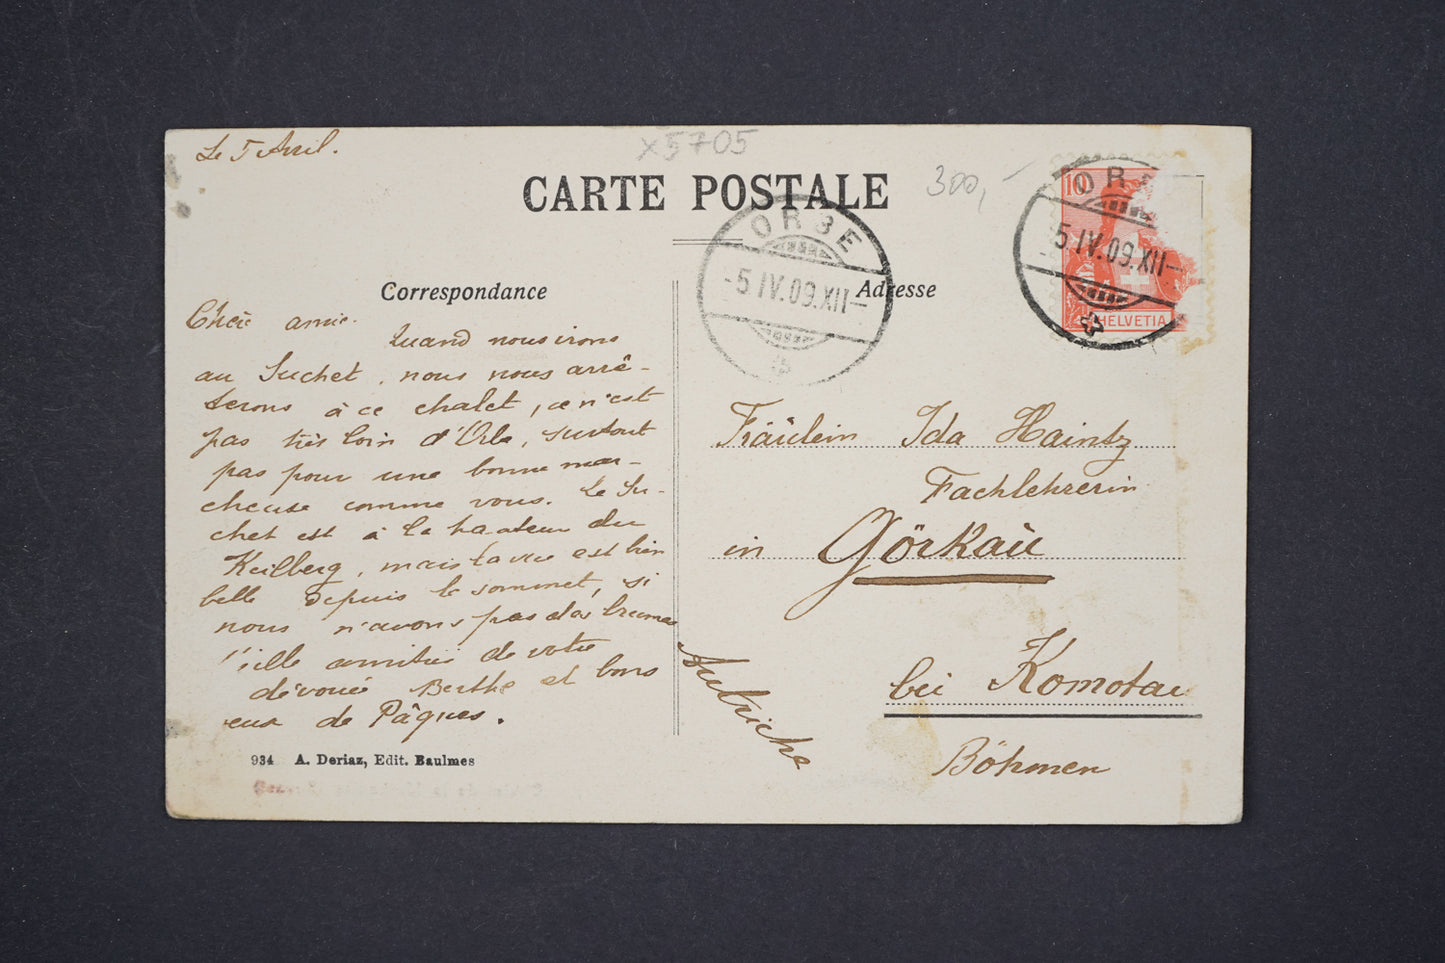 Le 5 Avril.
x5705
300,-
CARTE POSTALE
ORBE
-5 IV.09.XII-
10
ORB
5 IV.09.XII-
HELVETIA
Correspondance
Adresse
Chère amie.
Quand nous irons
au Suchet, nous nous arrê-
terons à ce chalet, ce n'est
pas très loin d'Orbe, surtout
pas pour une bonne mar-
cheuse comme vous. Le Su-
chet est à la hauteur du
Keilberg, mais la vue est bien
belle depuis le sommet, si
nous n'avons pas des brumes
Mille amitiés de votre
dévouée Berthe et bons
œufs de Pâques.
934 A. Deriaz, Edit. Baulmes
Fräulein Ida Haintz
Fachlehrerin
in Görkau
bei Komotau
Böhmen
Autriche